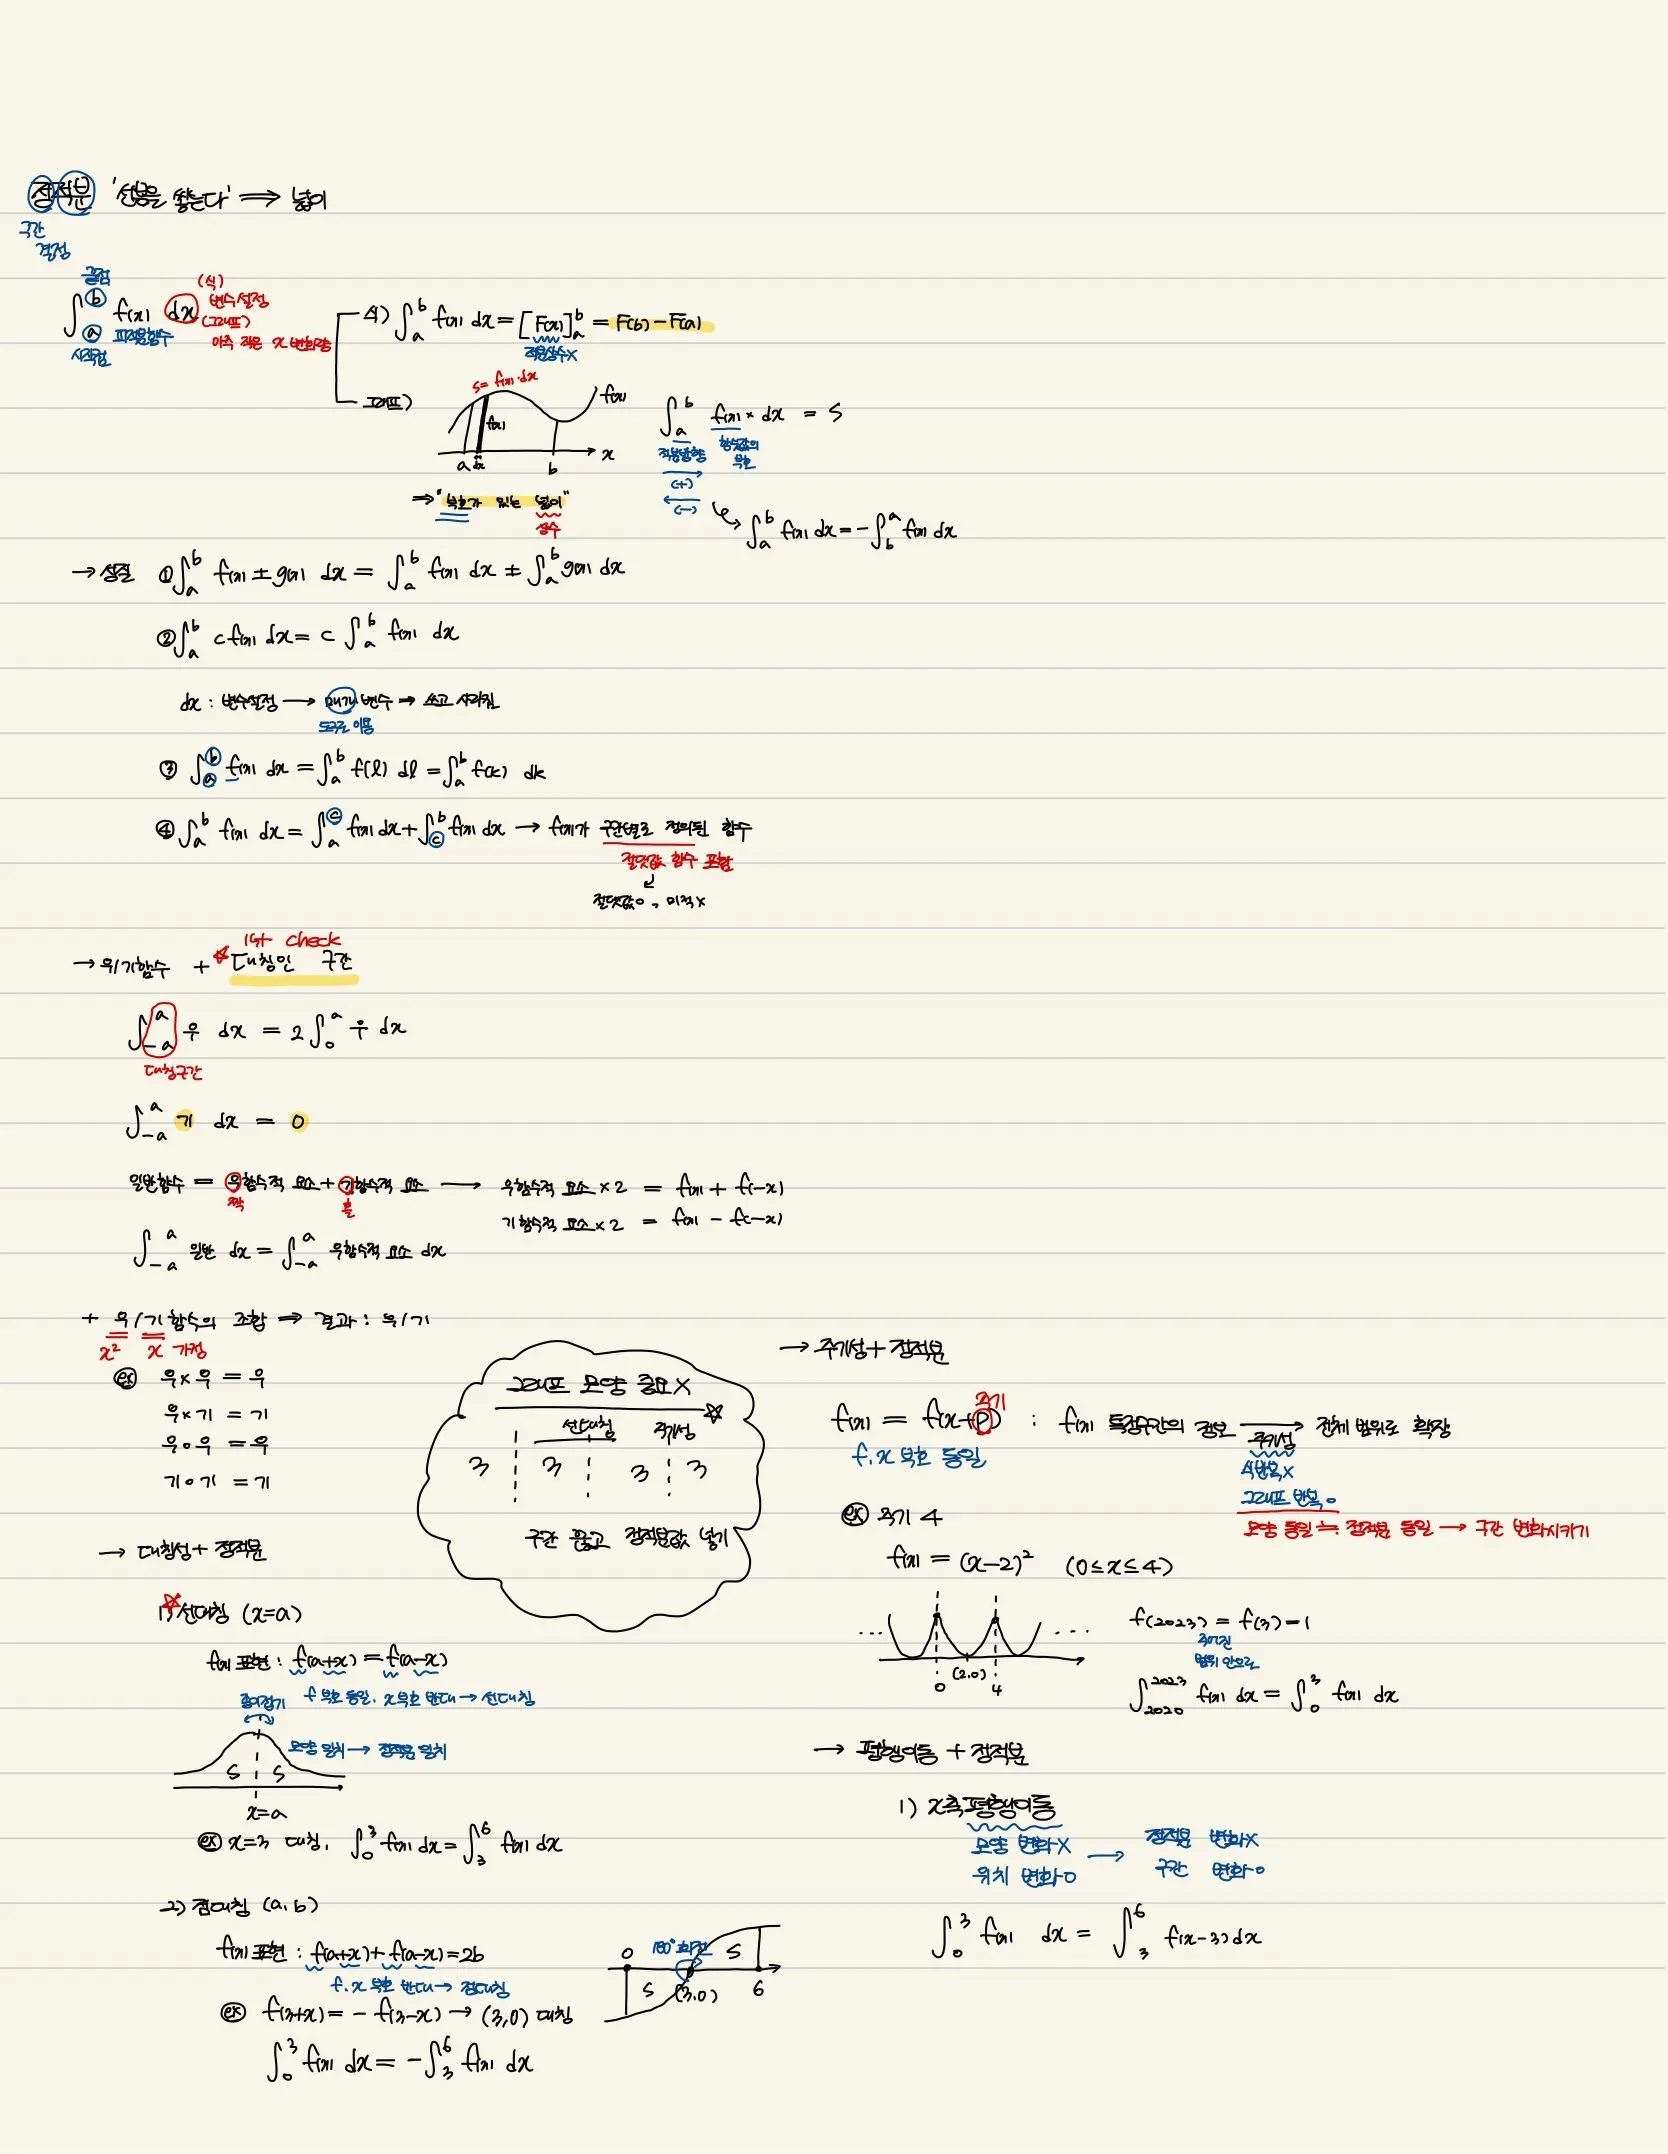 정적분 '선분을 쌓는다' ⟹ 넓이
구간
결정
끝점
∫_a^b f(x) dx
시작점
피적분함수
(식)
변수설정
(그래프)
아주 작은 x변화량
식) ∫_a^b f(x) dx = [F(x)]_a^b = F(b) - F(a)
적분상수X
그래프)
S = f(x)·dx
f(x)
f(x)
a dx b x
⇒ "부호가 있는 넓이"
상수
∫_a^b f(x) × dx = S
적분방향
함숫값의
부호
(+)
(-)
∫_a^b f(x) dx = -∫_b^a f(x) dx
→ 성질 ① ∫_a^b f(x) ± g(x) dx = ∫_a^b f(x) dx ± ∫_a^b g(x) dx
② ∫_a^b c f(x) dx = c ∫_a^b f(x) dx
dx : 변수설정 → 매개변수 ⇒ 쓰고 사라짐
도구로 이용
③ ∫_a^b f(x) dx = ∫_a^b f(l) dl = ∫_a^b f(k) dk
④ ∫_a^b f(x) dx = ∫_a^c f(x) dx + ∫_c^b f(x) dx → f(x)가 구간별로 정의된 함수
절댓값 함수 포함
절댓값0, 미적X
→ 우/기함수 + ☆대칭인 구간
1st check
∫_{-a}^a 우 dx = 2∫_0^a 우 dx
대칭구간
∫_{-a}^a 기 dx = 0
일반함수 = 우함수적 요소 + 기함수적 요소 → 우함수적 요소×2 = f(x) + f(-x)
짝 홀
기함수적 요소×2 = f(x) - f(-x)
∫_{-a}^a 일반 dx = ∫_{-a}^a 우함수적 요소 dx
+ 우/기함수의 조합 ⇒ 결과 : 우/기
x² x 가정
ex 우×우 = 우
우×기 = 기
우∘우 = 우
기∘기 = 기
그래프 모양 중요X
선대칭 주기성
3 3 3 3
구간 끊고 정적분값 넣기
→ 대칭성 + 정적분
1) ☆선대칭 (x=a)
f(x) 표현 : f(a+x) = f(a-x)
f 부호 동일, x부호 반대 → 선대칭
종이접기
모양 일치 → 정적분 일치
S S
x=a
ex x=3 대칭, ∫_0^3 f(x) dx = ∫_3^6 f(x) dx
2) 점대칭 (a,b)
f(x) 표현 : f(a+x) + f(a-x) = 2b
f, x 부호 반대 → 점대칭
ex f(3+x) = -f(3-x) → (3,0) 대칭
∫_0^3 f(x) dx = -∫_3^6 f(x) dx
0 180° 회전 S
S (3,0) 6
→ 주기성 + 정적분
주기
f(x) = f(x+p) : f(x) 특정구간의 정보 → 전체 범위로 확장
주기성
f, x 부호 동일
식반복X
그래프 반복o
모양 동일 ≒ 정적분 동일 → 구간 변화시키기
ex 주기 4
f(x) = (x-2)² (0≤x≤4)
... ...
0 (2,0) 4
f(2023) = f(3) = 1
주어진
범위 안으로
∫_2020^2023 f(x) dx = ∫_0^3 f(x) dx
→ 평행이동 + 정적분
1) x축평행이동
모양 변화X → 정적분 변화X
위치 변화O 구간 변화O
∫_0^3 f(x) dx = ∫_3^6 f(x-3) dx